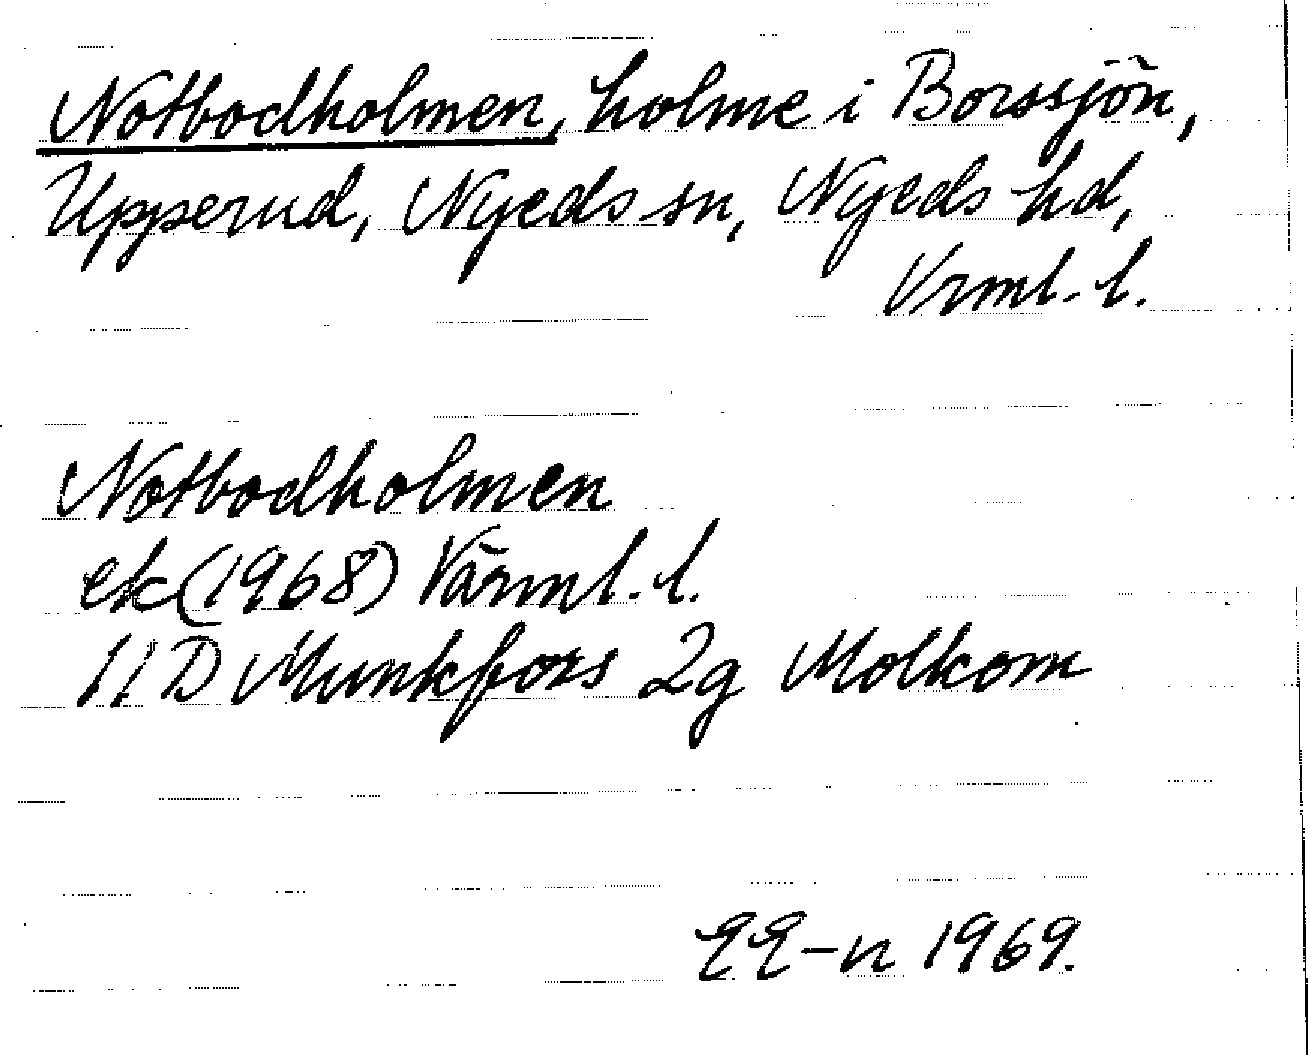 Notbodholmen, holme i Borssjön,
Upperud, Nyeds sn, Nyeds hd,
Vrml. l.
Notbodholmen
ek (1968) Värml. l.
11D Munkfors 2g Molkom
EE-n 1969.